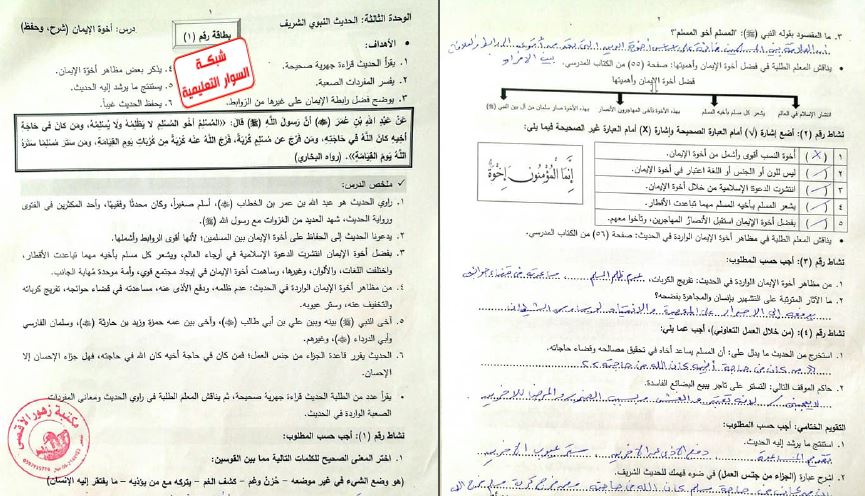 ١
الوحدة الثالثة: الحديث النبوي الشريف
درس: أخوة الإيمان (شرح، وحفظ)
بطاقة رقم (١)
شبكة
السوار التعليمية
• الأهداف:
١. يقرأ الحديث قراءة جهرية صحيحة.
٤. يذكر بعض مظاهر أخوّة الإيمان.
٢. يفسر المفردات الصعبة.
٥. يستنتج ما يرشد إليه الحديث.
٣. يوضح فضل رابطة الإيمان على غيرها من الروابط.
٦. يحفظ الحديث غيباً.
عَنْ عَبْدِ اللَّهِ بْنِ عُمَرَ (ﷺ) أَنَّ رَسُولَ اللَّهِ (ﷺ) قَالَ: «المُسْلِمُ أَخُو المُسْلِمِ لاَ يَظْلِمُهُ وَلاَ يُسْلِمُهُ، وَمَنْ كَانَ فِي حَاجَةِ
أَخِيهِ كَانَ اللَّهُ فِي حَاجَتِهِ، وَمَنْ فَرَّجَ عَنْ مُسْلِمٍ كُرْبَةً، فَرَّجَ اللَّهُ عَنْهُ كُرْبَةً مِنْ كُرُبَاتِ يَوْمِ القِيَامَةِ، وَمَنْ سَتَرَ مُسْلِمًا سَتَرَهُ
اللَّهُ يَوْمَ القِيَامَةِ». (رواه البخاري)
✓ ملخص الدرس:
١. راوي الحديث هو عبد الله بن عمر بن الخطاب (ﷺ)، أسلم صغيراً، وكان محدثاً وفقيهاً، وأحد المكثرين في الفتوى
ورواية الحديث، شهد العديد من الغزوات مع رسول الله (ﷺ).
٢. يدعونا الحديث إلى الحفاظ على أخوة الإيمان بين المسلمين؛ لأنها أقوى الروابط وأشملها.
٣. بفضل أخوة الإيمان انتشرت الدعوة الإسلامية في أرجاء العالم، ويشعر كل مسلم بأخيه مهما تباعدت الأقطار،
واختلفت اللغات، والألوان، وغيرها، وساهمت أخوة الإيمان في إيجاد مجتمع قوي، وأمة موحدة مُهابة الجانب.
٤. من مظاهر أخوة الإيمان الواردة في الحديث: عدم ظلمه، ودفع الأذى عنه، مساعدته في قضاء حوائجه، تفريج كرباته
والتخفيف عنه، وستر عيوبه.
٥. آخى النبي (ﷺ) بينه وبين علي بن أبي طالب (ﷺ)، وآخى بين عمه حمزة وزيد بن حارثة (ﷺ)، وسلمان الفارسي
وأبي الدرداء (ﷺ)، وغيرهم.
٦. الحديث يقرر قاعدة الجزاء من جنس العمل؛ فمن كان في حاجة أخيه كان الله في حاجته، فهل جزاء الإحسان إلا
الإحسان.
• يقرأ عدد من الطلبة الحديث قراءة جهرية صحيحة، ثم يناقش المعلم الطلبة في راوي الحديث ومعاني المفردات
الصعبة الواردة في الحديث.
نشاط رقم (١): أجب حسب المطلوب:
١. اختر المعنى الصحيح للكلمات التالية مما بين القوسين:
(هو وضع الشيء في غير موضعه – حُزنٌ وغم – كشف الغم – يتركه مع من يؤذيه – ما يفتقر إليه الإنسان)
مكتبة زهور الأقصى
٢
٣. ما المقصود بقوله النبي (ﷺ): "المسلم أخو المسلم"؟
• يناقش المعلم الطلبة في فضل أخوة الإيمان وأهميتها: صفحة (٥٥) من الكتاب المدرسي.
بين الأفراد
فضل أخوة الإيمان وأهميتها
انتشار الإسلام في العالم
يشعر كل مسلم بأخيه المسلم
بهذه الأخوة تآخى المهاجرون الأنصار
بهذه الأخوة صار سلمان من آل بين النبي (ﷺ)
نشاط رقم (٢): أضع إشارة (√) أمام العبارة الصحيحة وإشارة (X) أمام العبارة غير الصحيحة فيما يلي:
١ (X) أخوة النسب أقوى وأشمل من أخوة الإيمان.
٢ (✓) ليس للون أو الجنس أو اللغة اعتبار في أخوة الإيمان.
٣ (✓) انتشرت الدعوة الإسلامية من خلال أخوة الإيمان.
٤ (✓) يشعر المسلم بأخيه المسلم مهما تباعدت الأقطار.
٥ (✓) بفضل أخوة الإيمان استقبل الأنصارُ المهاجرين، وتآخوا معهم.
إِنَّمَا الْمُؤْمِنُونَ إِخْوَةٌ
• يناقش المعلم الطلبة في مظاهر أخوة الإيمان الواردة في الحديث: صفحة (٥٦) من الكتاب المدرسي.
نشاط رقم (٣): أجب حسب المطلوب:
١. من مظاهر أخوة الإيمان الواردة في الحديث: تفريج الكربات، عدم ظلم المسلم مساعدته في قضاء حوائجه
٢. ما الآثار المترتبة على التشهير بإنسان والمجاهرة بفضحه؟
يدفعه إلى الإصرار على المعصية والانقياد لوساوس الشيطان
نشاط رقم (٤): (من خلال العمل التعاوني)، أجب عما يلي:
١. استخرج من الحديث ما يدل على: أن المسلم يساعد أخاه في تحقيق مصالحه وقضاء حاجاته.
ومن كان في حاجة أخيه كان الله في حاجته
٢. حاكم الموقف التالي: التستر على تاجر يبيع البضائع الفاسدة.
التقويم الختامي: أجب حسب المطلوب:
١. استنتج ما يرشد إليه الحديث.
تقديم المساعدة دفع الأذى عن الآخرين ستر عيوب الآخرين
٢. اشرح عبارة (الجزاء من جنس العمل) في ضوء فهمك للحديث الشريف.